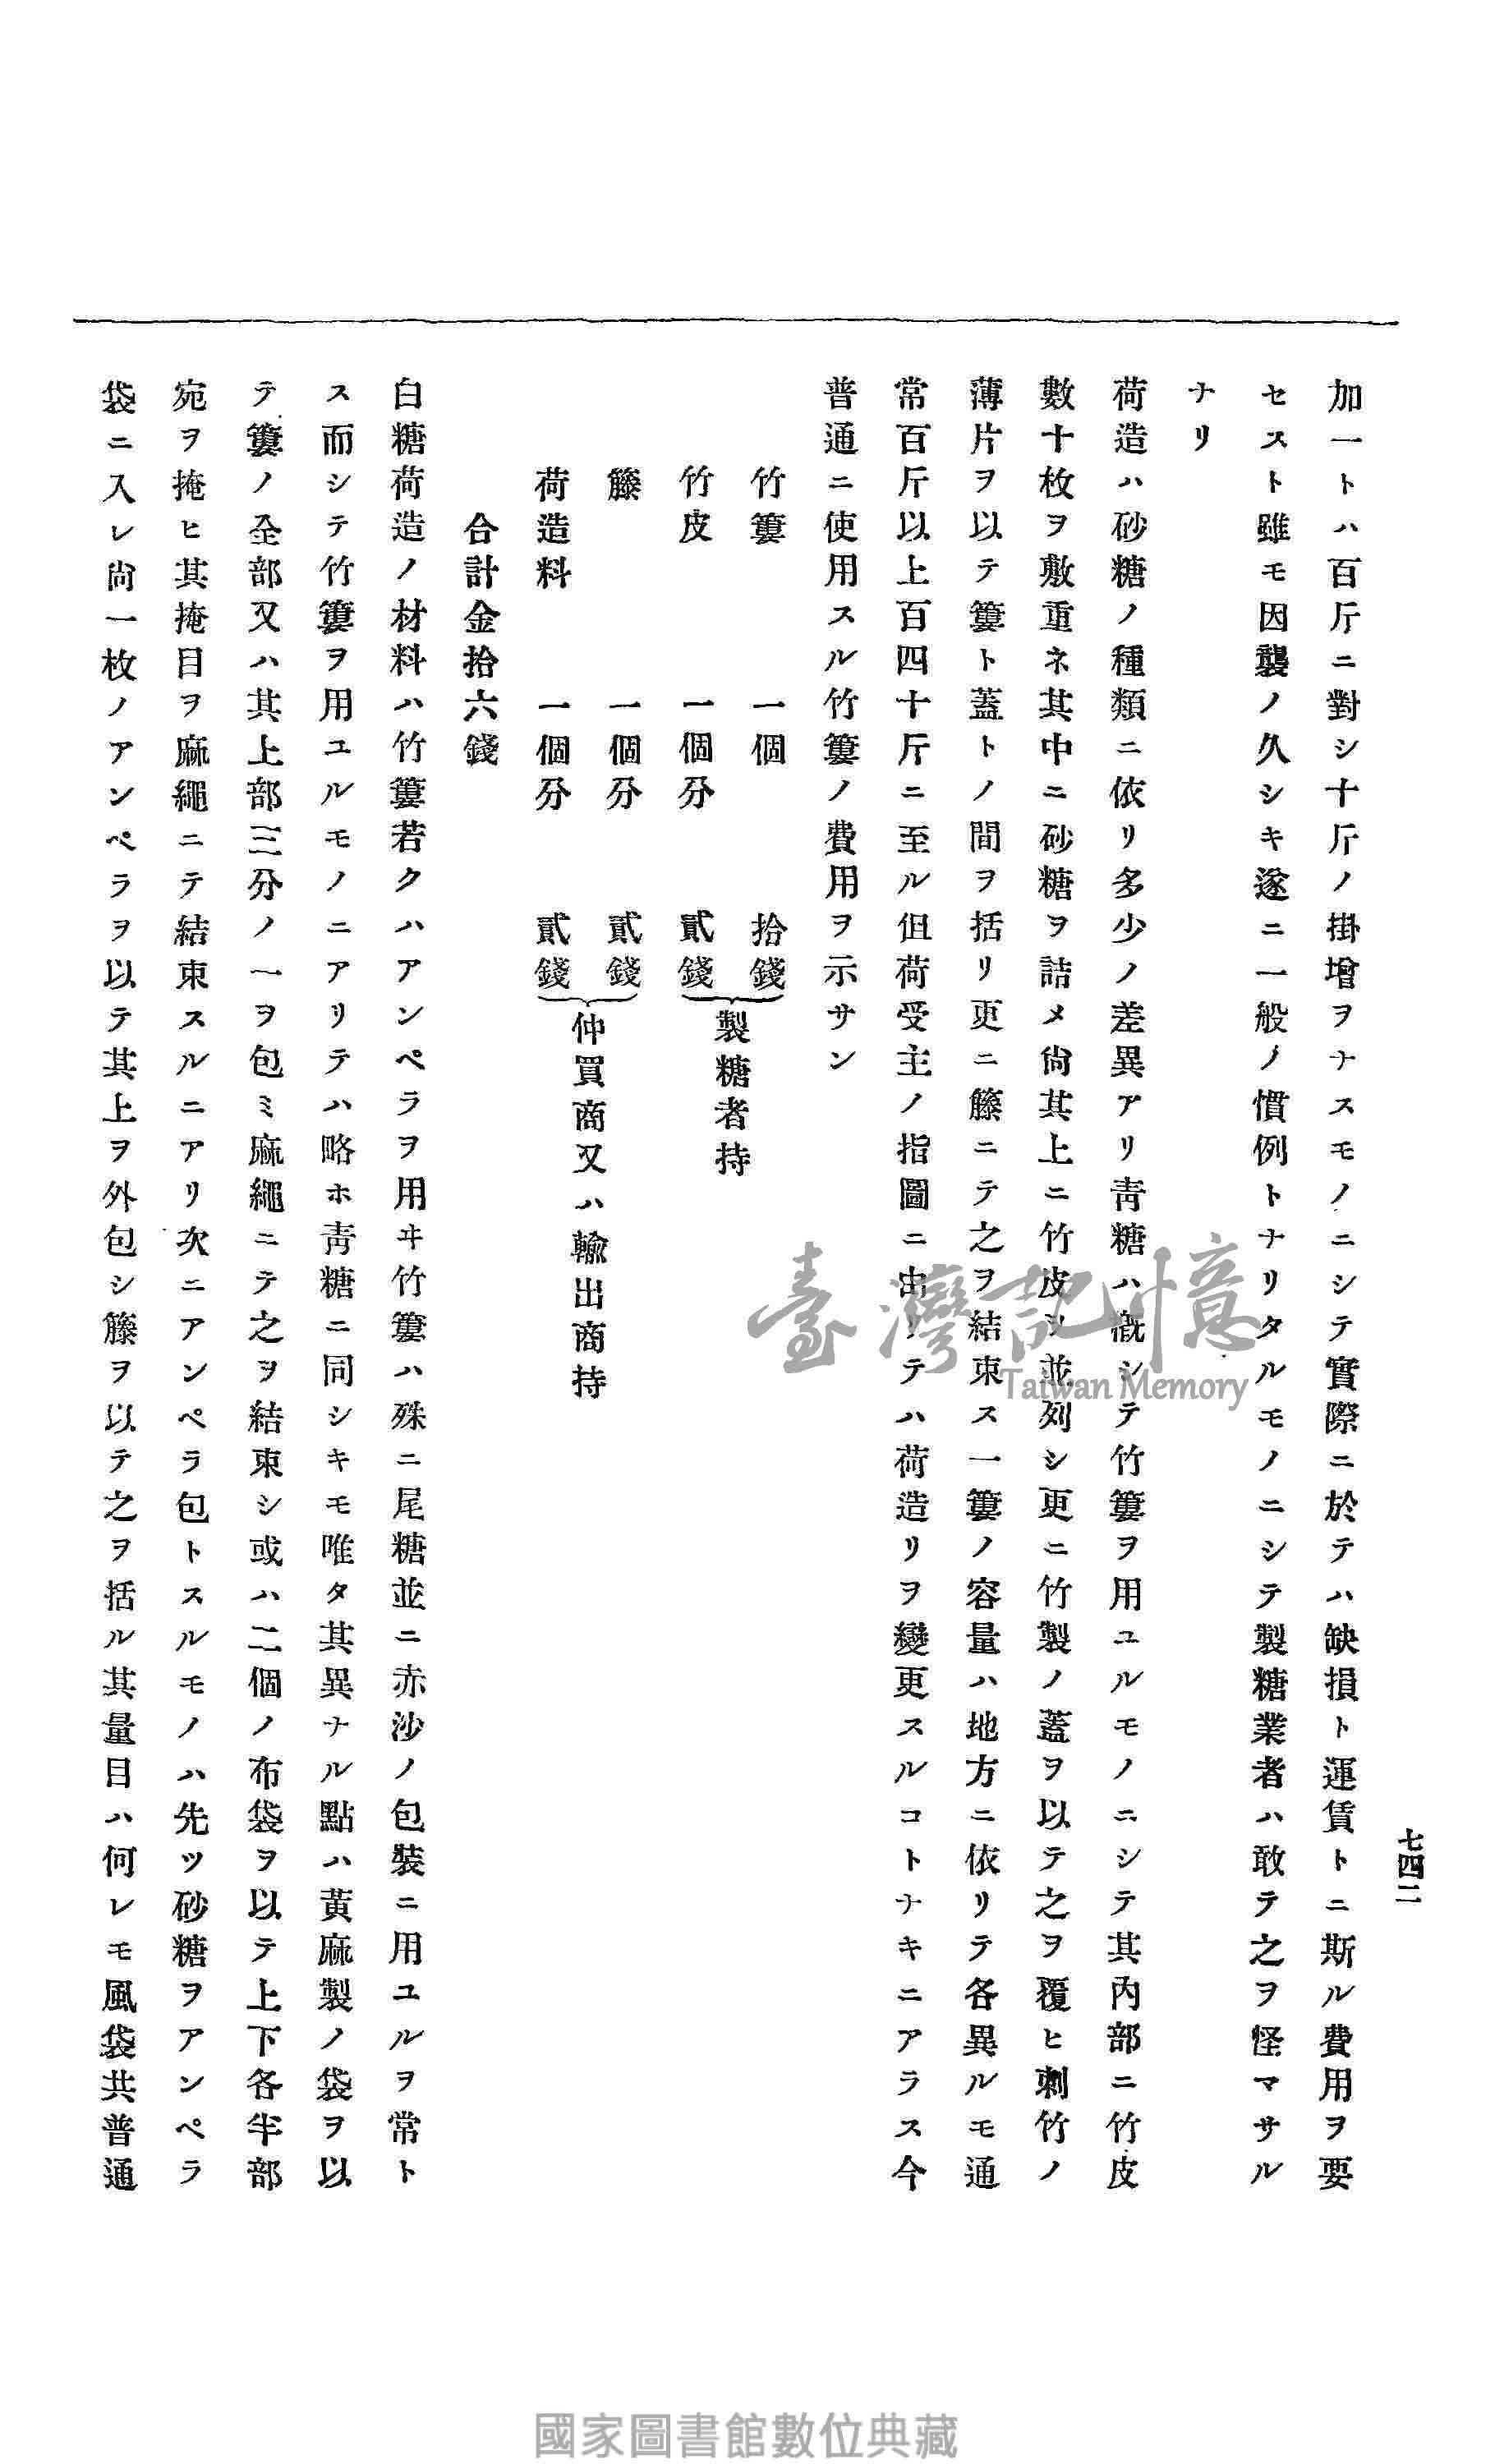 七四二
加一トハ百斤ニ對シ十斤ノ掛增ヲナスモノニシテ實際ニ於テハ缺損ト運賃トニ斯ル費用ヲ要
セスト雖モ因襲ノ久シキ遂ニ一般ノ慣例トナリタルモノニシテ製糖業者ハ敢テ之ヲ怪マサル
ナリ
荷造ハ砂糖ノ種類ニ依リ多少ノ差異アリ靑糖ハ概シテ竹簍ヲ用ユルモノニシテ其內部ニ竹皮
數十枚ヲ敷重ネ其中ニ砂糖ヲ詰メ尙其上ニ竹皮ヲ並列シ更ニ竹製ノ蓋ヲ以テ之ヲ覆ヒ刺竹ノ
薄片ヲ以テ簍ト蓋トノ間ヲ括リ更ニ籐ニテ之ヲ結束ス一簍ノ容量ハ地方ニ依リテ各異ルモ通
常百斤以上百四十斤ニ至ル但荷受主ノ指圖ニ由リテハ荷造リヲ變更スルコトナキニアラス今
普通ニ使用スル竹簍ノ費用ヲ示サン
竹簍 一個 拾錢
竹皮 一個分 貳錢
製糖者持
籐 一個分 貳錢
荷造料 一個分 貳錢
仲買商又ハ輸出商持
合計金拾六錢
白糖荷造ノ材料ハ竹簍若クハアンペラヲ用ヰ竹簍ハ殊ニ尾糖並ニ赤沙ノ包裝ニ用ユルヲ常ト
ス而シテ竹簍ヲ用ユルモノニアリテハ略ホ靑糖ニ同シキモ唯タ其異ナル點ハ黃麻製ノ袋ヲ以
テ簍ノ全部又ハ其上部三分ノ一ヲ包ミ麻繩ニテ之ヲ結束シ或ハ二個ノ布袋ヲ以テ上下各半部
宛ヲ掩ヒ其掩目ヲ麻繩ニテ結束スルニアリ次ニアンペラ包トスルモノハ先ツ砂糖ヲアンペラ
袋ニ入レ尙一枚ノアンペラヲ以テ其上ヲ外包シ籐ヲ以テ之ヲ括ル其量目ハ何レモ風袋共普通
臺灣記憶
Taiwan Memory
國家圖書館數位典藏